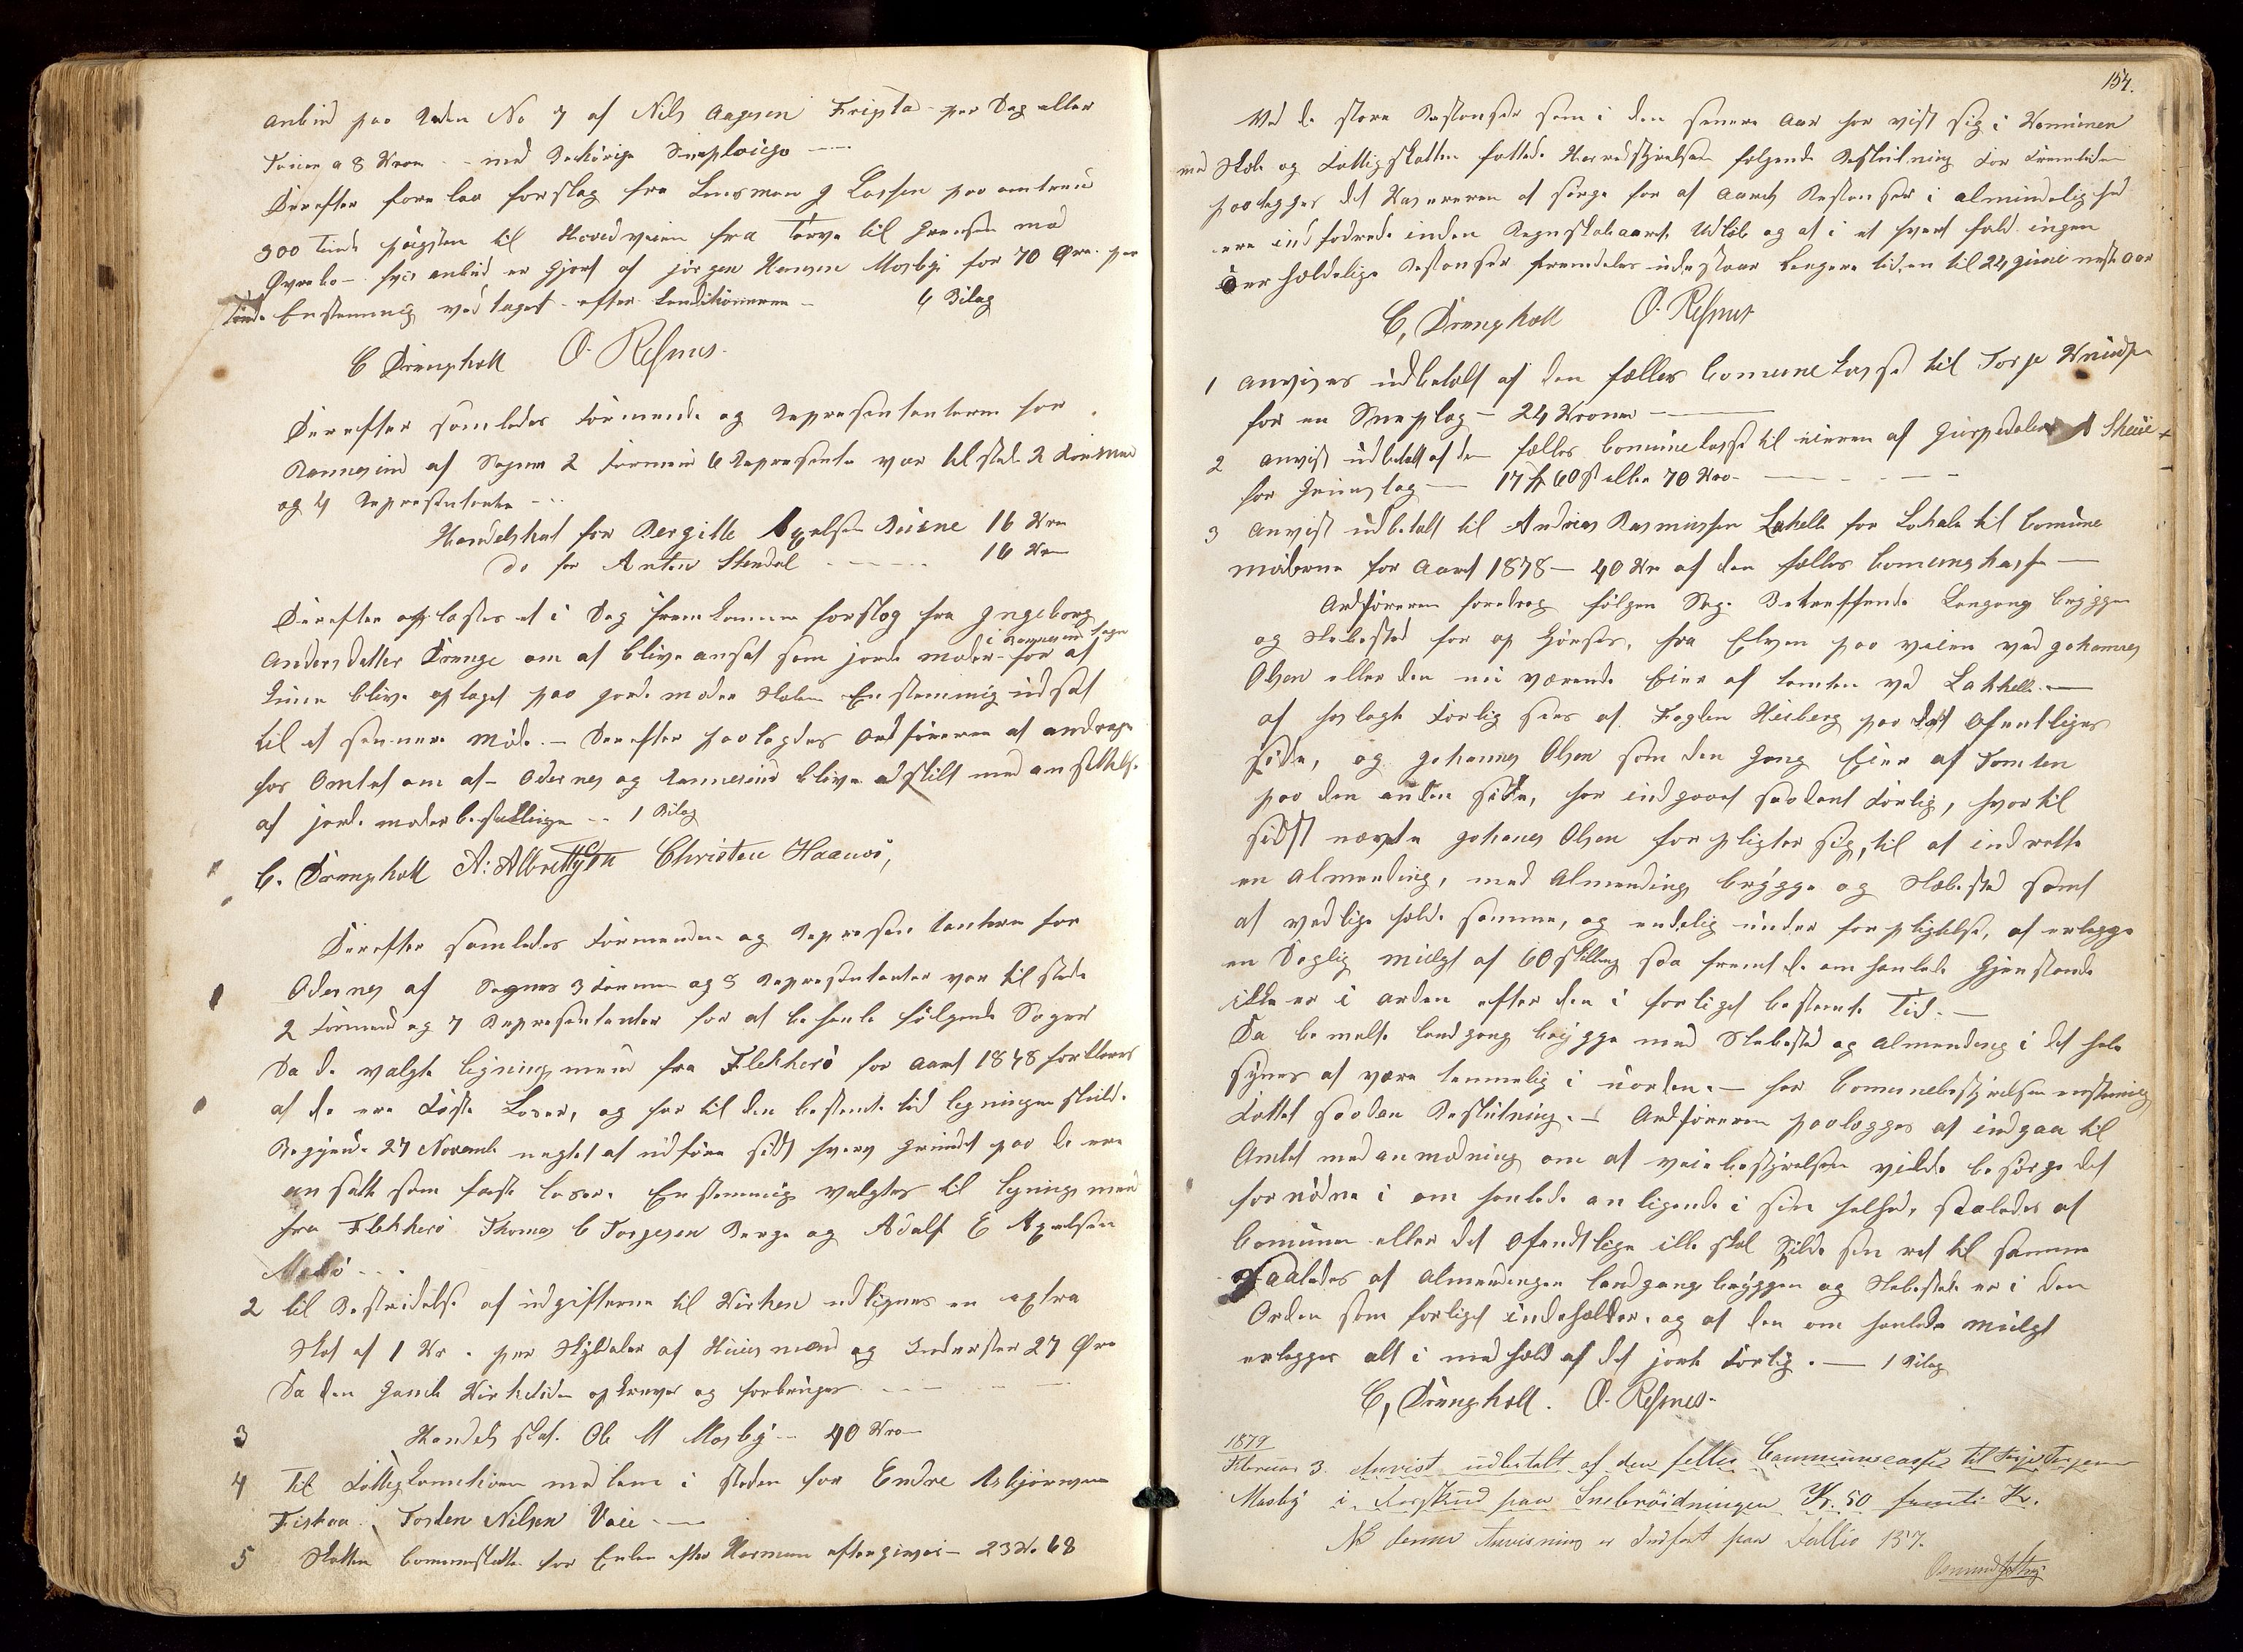 anbud paa Roden No 7 af Nils Aagesen Fripsta per Dag eller
Turen a 8 Kron -- med Behørige Sneploüge ----
Derefter fore laa forslag fra Lensman J Lassen paa omtrent
300 Tønde pügsten til Hovedveien fra Torve til Grensen mod
Øvrebø - hvis anbud er gjort af Jørgen Hansen Mosby for 70 Øre per
Tønde Enstemmig vedtaget - efter Conditionerne - 4 Bilag
C Drangholt O. Refsnes.
Derefter samledes Formænd og Representanterne for
Rannesund af Sognes 2 Formænd 6 Representa var tilstede 2 Formænd
og 4 Representanter -..
Handelskat for Bergitte Axelsen Büene 16 Kro
Do for Anton Stendal ------ 16 Kro
Derefter oplæstes et i Dag fremkommen forslag fra Ingeborg
Andersdatter Drange om at blive ansat som jordemoder i Rannesund Sogn for at
kune blive optaget paa jordemoder Skolen Enstemmig udsat
til et sennere Møde. - Derefter paalagdes Ordføreren at andrage
hos Amtet om at Oddernes og Rannesund blive adskilt med ansettelse
af jordemoder bestillinge -- 1 Bilag
C. Drangholt A: Albrettsen Christen Haanes,
Derefter samledes Formændene og Representantene for
Odernes af Sognes 3 Formæn og 8 Representanter var tilstede
2 Formænd og 7 Representanter for at behanle følgende Sager
Da de valgte ligningsmænd fra Flekkerø for Aaret 1878 forklares
at de ere Faste Loser, og har til den bestemte tid ligningen skulde
Begynde 27 Novembe negtet at udføre sidt hverv grundet paa de ere
ansatt som faste loser. Enstemmig valgtes til lignings mænd
fra Flekkerø Thomas C Torgesen Berge og Adolf E Axelsen
Mæbø - - .
2 til Bestridelse af udgifterne til Kirken udlignes en extra
Skat af 1 Kr. per Skyldaler af Husmænd og Inderster 27 Øre
Da den gamle Kirketiden opkreves og forbruges ------
3 Handels skat. Ole M Mosby -- 40 Kro
4 Til Fattigkometionen medlem i steden for Endre Asbjørnsen
Fiskaa. Torsten Nilsen Vaie ---
5 Skatten Comuneskatte for Enken efter Herman eftergives - 23 Kr 68
154.
Ved de store Restanser som i den senere Aar har vist sig i Komunen
med Skole og Fattigskatten fattede Herredstyrelsen følgende Beslutning For Fremtiden
paalegges det Kasereren at sørge for at Aarets Restanser i almindelighed
ere indfodrede inden Regnskabsaarets Udløb og at i et hvert fald ingen
erholdelige Restanser fremdeles udestaar lengere tid, en til 24 Juni neste Aar
C, Drangholt O. Refsnes
1 anvises udbetalt af den fælles Comunekasse til Torje Knudsen
for en Sneplog - 24 Kroner -----
2 anvist udbetalt af den fælles Comunekasse til eieren af
for Gruustag --- 17 60 ß eller 70 Kro- ------
3 anvist udbetalt til Andreas Rasmussen Lahelle for Lokale til Comune
møderne for Aaret 1878 - 40 Kr af den fælles Comunekasse ---
Ordføreren foredrog følgen Sag. Betreffende Langang brygge
og Støbested for op Hørsel, fra Elven paa veien ved Johannes
Olsen eller den nu værende Eier af tomten ved Lahelle. ---
af fremlagte Forlig sees af Fogden Heiberg paa det Ofentliges
side, og Johannes Olsen som den Gang Eier af Tomten
paa den anden side, har indgaaet saadant Forlig, hvortil
sidst nævnte Johanes Olsen forpligter sig, til at indrette
en Almending, med Almending brygge og Støbested samt
at vedlige holde samme, og endelig under forpligtelse, at erlegge
en Daglig Mulgt af 60 Skilling saa fremt de omhanlede Gjenstande
ikke er i orden efter den i forliget bestemte Tid. -
Da bemelte landgang brygge med Støbested og almending i det hele
synes at være temmelig i uorden. - har Comunebestyrelsen enstemmig
Fattet saadan Beslutning. - Ordføreren paalegges at indgaa til
Amtet med anmodning om at veie bestyrelsen vilde besørge det
fornødne i omhanlede anligende i sin helhed, saaledes at
Comunen eller det Ofendtlige ikke skal spilde sin ret til samme
Saaledes at Almendingen landgang bryggen og Støbestede er i den
Orden som forliget indeholder. og at den omhanlede mulgt
erlegges alt i medhold af det gjorte Forlig. --- 1 Bilag
C, Drangholt. O. Refsnes-
1879
Februar 3. Anvist udbetalt af den fælles Communecasse til Terje Terjesen
Mosby i Forskud paa Snebrøidningen Kr. 50 femti Kr.
NB denne Anvisning er Indført paa Follio 157.